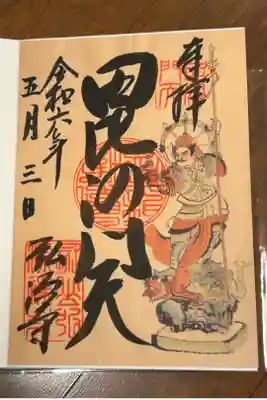 奉拝
毘沙門天
令和六年
五月三日
弘法寺